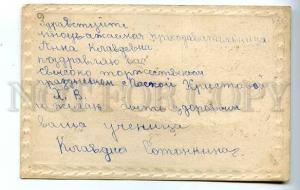 Здравствуйте
многоуважаемая преподавательница
Анна Клавдеевна
поздравляю вас
с высоко торжественном
праздником Пасхой Христовой
Х. В.
и желаю быть здоровым
ваша ученица
Клавдия